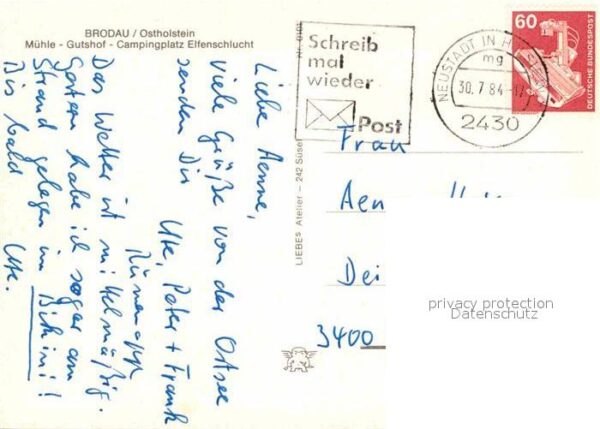 BRODAU / Ostholstein
Mühle - Gutshof - Campingplatz Elfenschlucht
Liebe Aenne,
viele Grüße von der Ostsee
senden Dir Ute, Peter + Frank
Das Wetter ist mittelmäßig.
Gestern habe ich sogar am
Strand gelegen im Bikini!
Bis bald
Ute.
LIEBEs Atelier – 242 Süsel
Schreib
mal
wieder
Post
NEUSTADT IN H
mg
30.7.84-17
2430
60
DEUTSCHE BUNDESPOST
Frau
Aen
Dei
3400
privacy protection
Datenschutz